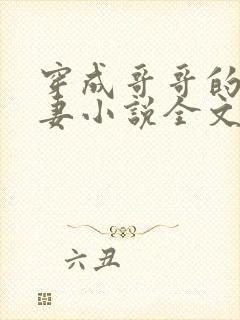 穿成哥哥的
妻小说全文
六丑